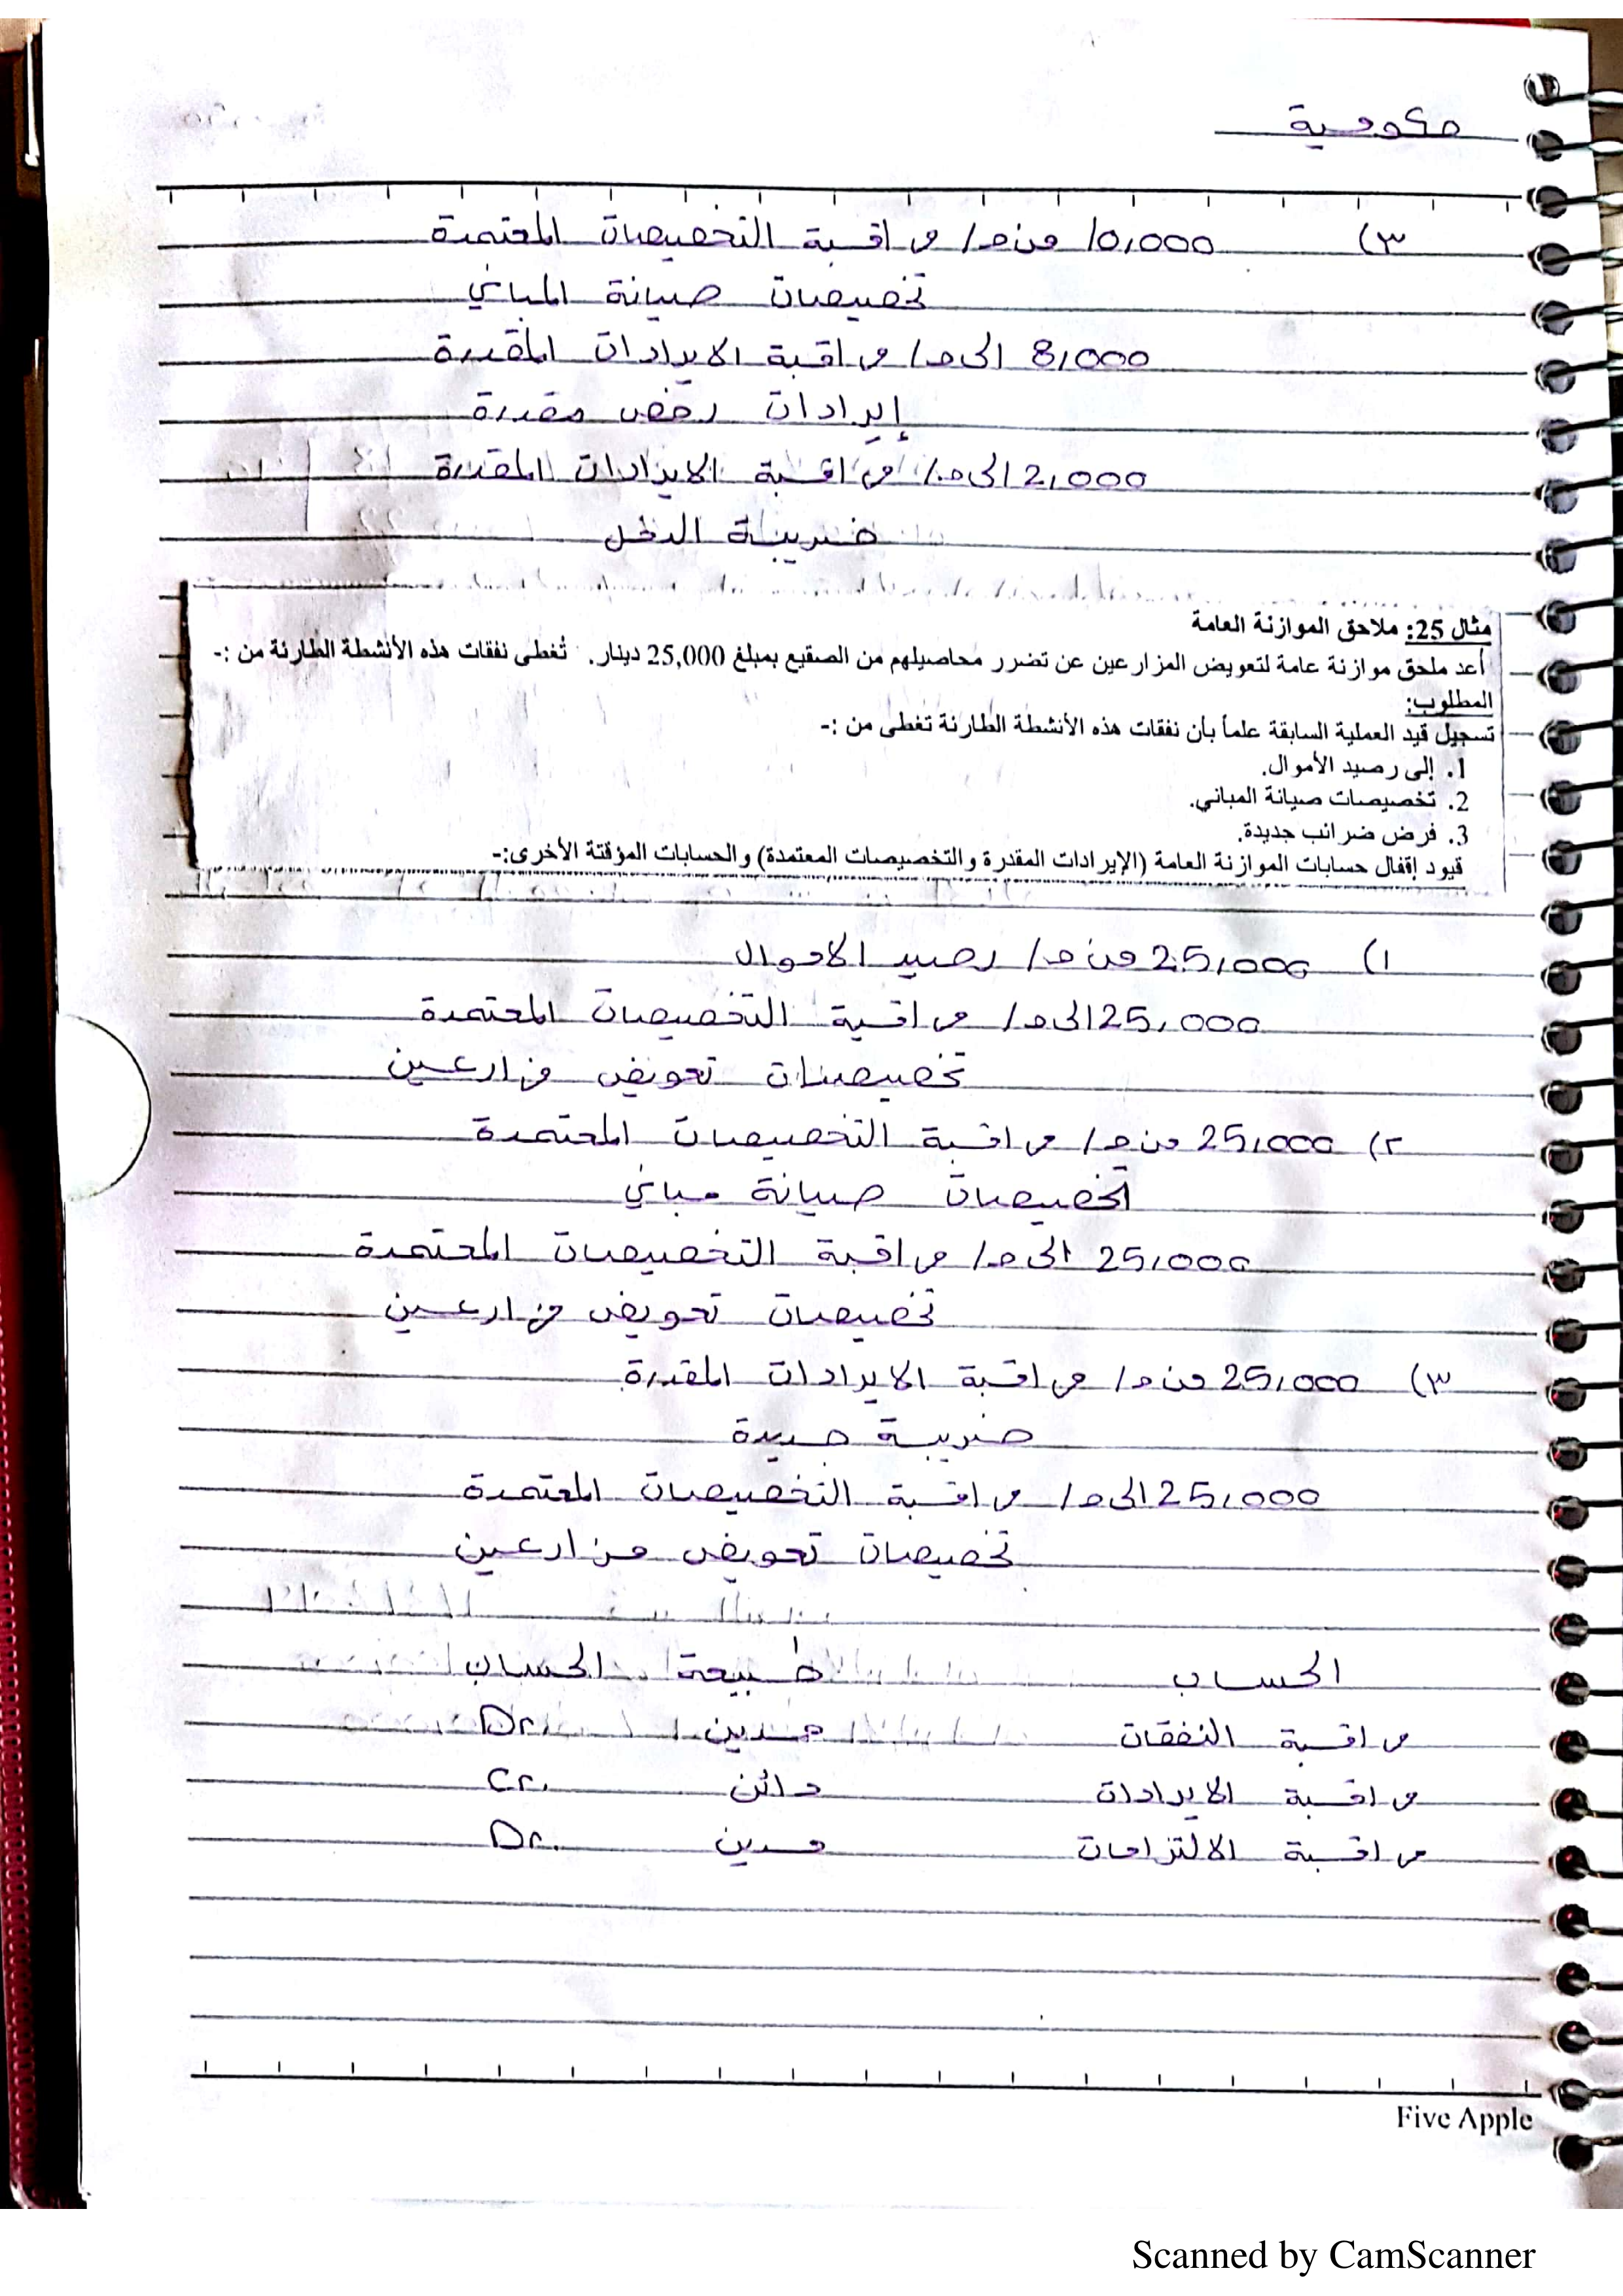 حكومية
٣) 10,000 من ح/ مراقبة التخصيصات المعتمدة
تخصيصات صيانة المباني
8,000 الى ح/ مراقبة الايرادات المقدرة
إيرادات رخص مقدرة
2,000 الى ح/ مراقبة الايرادات المقدرة
ضريبة الدخل
مثال 25: ملاحق الموازنة العامة
أعد ملحق موازنة عامة لتعويض المزارعين عن تضرر محاصيلهم من الصقيع بمبلغ 25,000 دينار. تُغطى نفقات هذه الأنشطة الطارئة من :-
المطلوب:
تسجيل قيد العملية السابقة علماً بأن نفقات هذه الأنشطة الطارئة تغطى من :-
1. إلى رصيد الأموال.
2. تخصيصات صيانة المباني.
3. فرض ضرائب جديدة.
قيود إقفال حسابات الموازنة العامة (الإيرادات المقدرة والتخصيصات المعتمدة) والحسابات المؤقتة الأخرى:-
١) 25,000 من ح/ رصيد الاموال
25,000 الى ح/ مراقبة التخصيصات المعتمدة
تخصيصات تعويض مزارعين
٢) 25,000 من ح/ مراقبة التخصيصات المعتمدة
تخصيصات صيانة مباني
25,000 الى ح/ مراقبة التخصيصات المعتمدة
تخصيصات تعويض مزارعين
٣) 25,000 من ح/ مراقبة الايرادات المقدرة
ضريبة جديدة
25,000 الى ح/ مراقبة التخصيصات المعتمدة
تخصيصات تعويض مزارعين
الحساب طبيعة الحساب
مراقبة النفقات مدين Dr.
مراقبة الايرادات دائن Cr.
مراقبة الالتزامات مدين Dr.
Five Apple
Scanned by CamScanner